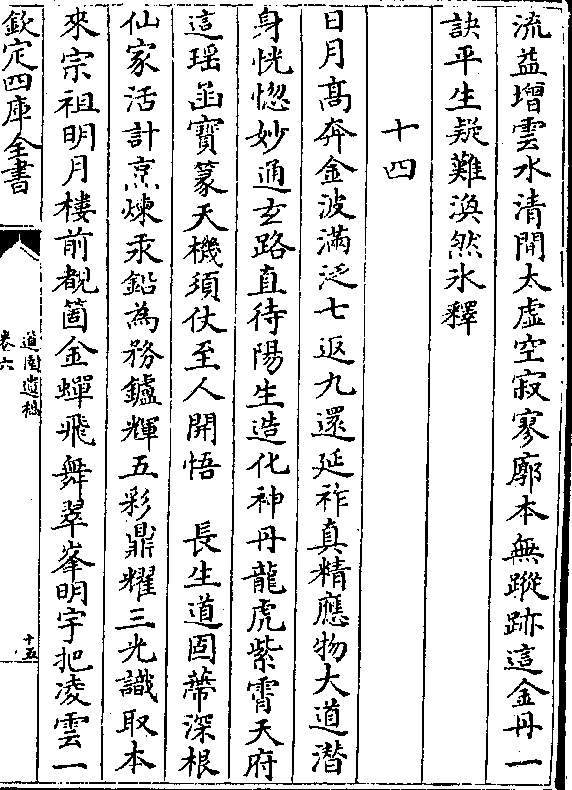 流益增雲水清閒太虛空寂寥廓本無蹤跡這金丹一
訣平生疑難渙然冰釋
十四
日月高奔金波滿泛七返九還延祚真精應物大道潛
身恍惚妙通玄路直待陽生造化神丹龍虎紫霄天府
這瑶函寶篆天機須仗至人開悟　長生道固蔕深根
仙家活計烹煉汞鉛為務鑪輝五彩鼎耀三光識取本
來宗祖明月樓前覩箇金蟬飛舞翠峯明宇把凌雲一
欽定四庫全書
道園遺稿
卷六
十五